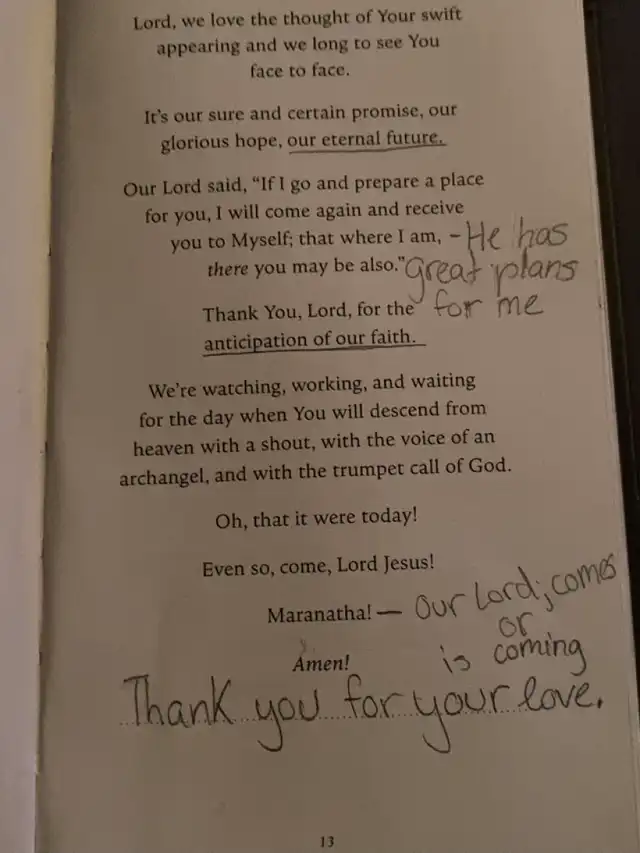 Lord, we love the thought of Your swift
appearing and we long to see You
face to face.
It's our sure and certain promise, our
glorious hope, our eternal future.
Our Lord said, "If I go and prepare a place
for you, I will come again and receive
you to Myself; that where I am, - He has
there you may be also." great plans
Thank You, Lord, for the for me
anticipation of our faith.
We're watching, working, and waiting
for the day when You will descend from
heaven with a shout, with the voice of an
archangel, and with the trumpet call of God.
Oh, that it were today!
Even so, come, Lord Jesus!
Maranatha! — Our Lord; comes
or
Amen! is coming
Thank you for your love.
13